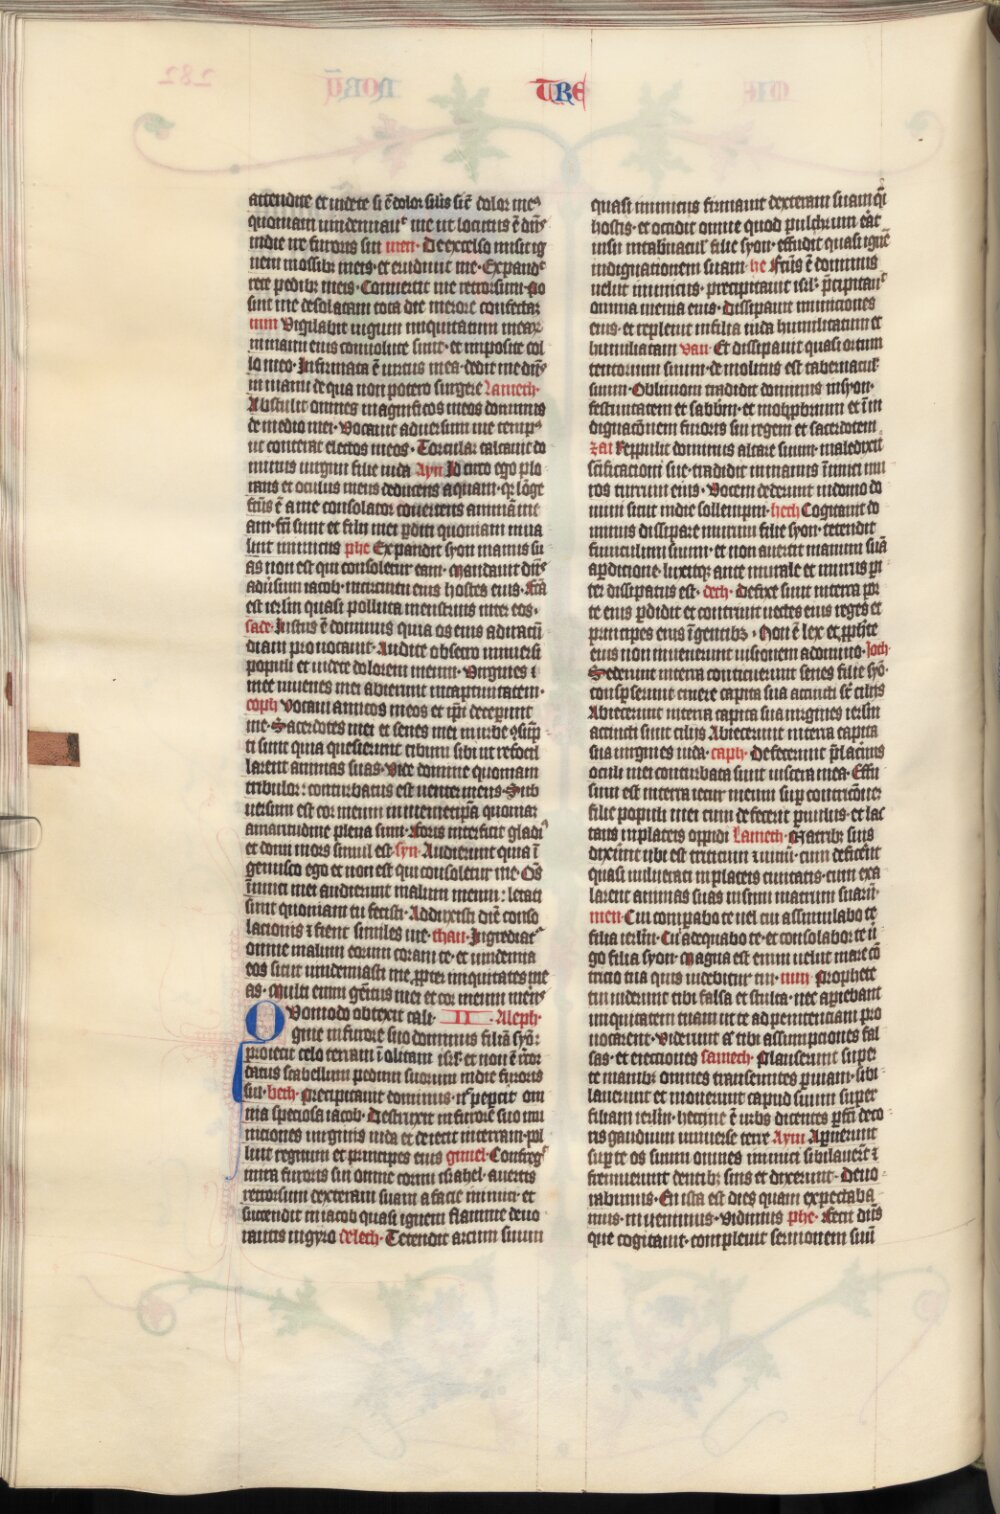 TRE
attendite et videte si ē dolor silis sic̄ dolor meꝰ
quoniam vindemiauᵗ me ut locutus ē dn̄s
in die ire furoris sui men · De excelso misit ig
nem in ossibꝫ meis · et erudiuit me · Expandᵗ
rete pedibꝫ meis · Conuertit me retrorsum · Po
suit me desolatam tota die merore confectā
nun Vigilabit iugum iniquitatum mearꝫ
in manu eius conuolute sunt · et imposite col
lo meo · Infirmata ē uirtus mea · dedit me dn̄s
in manu de qua non potero surgere lamech ·
Abstulit omnes magnificos meos dominus
de medio mei · Vocauit aduersum me tempꝰ
ut contereret electos meos · Torcular calcauit do
minus uirgini filie iuda Ayn Id circo ego plo
rans et oculus meus deducens aquam · qꝫ lōge
fc̄us ē a me consolator conuertens animā me
am · fc̄i sunt et filii mei ꝑditi quoniam inua
luit inimicus phe Expandit syon manus su
as non est qui consoletur eam · Mandauit dn̄s
adūsum iacob · in circuitu eius hostes eius · Fc̄a
est ierlm̄ quasi polluta menstruis inter eos ·
sade · Iustus ē dominus quia os eius ad iracū
diam prouocaui · Audite obsecro uniuersi
populi et videte dolorem meum · Virgines ⁊
mee iuuenes mei abierunt in captiuitatem ·
coph Vocaui amicos meos et ip̄i deceperunt
me · Sacerdotes mei et senes mei in urbe ꝯsūp
ti sunt quia quesierunt cibum sibi ut refocil
larent animas suas · Vide domine quoniam
tribulor : conturbatus est uenter meus · Sub
uersum est cor meum in memetip̄a quoniaꝫ
amaritudine plena sum · Foris interficit gladiꝰ
et domi mors simul est · syn · Audierunt quia ī
gemisco ego et non est qui consoletur me · Om̄s
īimici mei audierunt malum meum : letati
sunt quoniam tu fecisti · Adduxisti diē conso
lacionis ⁊ fient similes me · thau · Ingrediatᵗ
omne malum eorum coram te · et uindemia
eos sicut uindemiasti me ꝓpter iniquitates me
as · Multi enim gēitus mei et cor meum merēs
Quomodo obtexit cali II · Aleph ·
gine in furore suo dominus filiā syō :
proiecit celo terram īclitam isrl̄ · et non ē recor
datus scabellum pedum suorum in die furoris
sui · beth · Precipitauit dominus · n̄ pepercit om
nia speciosa iacob · Destruxit in furore suo mu
niciones uirginis iuda et deiecit in terram · pol
luit regnum et principes eius gimel · Confregᵗ
in ira furoris sui omne cornu israhel · auertit
retrorsum dexteram suam a facie inimici · et
succendit in iacob quasi ignem flamme deuo
rantis in gyro deleth · Tetendit arcum suum
quasi inimicus firmauit dexteram suam q̄i
hostis · et occidit omne quod pulchrum erat
uisu in tabernacul̄ filie syon · effudit quasi ignē
indignationem suam · he Fc̄us ē dominus
uelut inimicus · precipitauit isrl̄ · p̄cipitauᵗ
omnia menia eius · dissipauit municiones
eius · et repleuit in filia iuda humiliatum et
humiliatam vau · Et dissipauit quasi ortum
tentorium suum · demolitus est tabernacul̄
suum · Obliuioni tradidit dominus in syon ·
festiuitatem et sabb̄m · et in obprobrium et ī in
dignac̄onem furoris sui regem et sacerdotem ·
zai Reppulit dominus altare suum · maledixit
sc̄ificationi sue · tradidit in manus īimici mu
ros turrium eius · Vocem dederunt in domo do
mini sicut in die sollempni · heth Cogitauit do
minus dissipare murum filie syon · tetendit
funiculum suum · et non auertit manum suā
a ꝑditione · luxitqꝫ ante murale et murus pa
riter dissipatus est · deth · Defixe sunt in terra por
te eius ꝑdidit et contriuit uectes eius reges et
principes eius ī gentibꝫ · Non ē lex et ꝓph̄te
eius non inuenerunt uisionem a domino · ioth ·
Sederunt in terra conticuerunt senes filie syō ·
consꝑserunt cinere capita sua accincti st̄ ciliis
Abiecerunt in terra capita sua uirgines ierlm̄
accincti sunt ciliis Abiecerunt in terra capita
sua uirgines iuda · caph · Defecerunt p̄ lacimis
oculi mei conturbata sunt uiscera mea · Effu
sum est in terra iecur meum suꝑ contricōne
filie populi mei cum deficeret paruulus · et lac
tans in plateis oppidi lameth · Matribꝫ suis
dixerunt ubi est triticum ⁊ uinū · cum deficēnt
quasi uulnerati in plateis ciuitatis · cum exa
larent animas suas in sinu matrum suarū ·
men · Cui comparabo te uel cui assimulabo te
filia ierlm̄ · Cui adequabo te · et consolabor te ū
go filia syon · Magna est enim uelut mare cō
tricio tua quis medebitur tui · nun · Prophete
tui uiderunt tibi falsa et stulta · nec apiebant
iniquitatem tuam ut te ad penitentiam pro
uocarent · Viderunt aū tibi assumptiones fal
sas · et eiectiones samech · Plauserunt super
te manibꝫ omnes transeuntes ꝑ uiam · sibi
lauerunt et mouerunt caput suum super
filiam ierlm̄ · heccine ē urbs dicentes ꝑfc̄i deco
ris gaudium uniuerse terre Ayin Aperuerunt
suꝑ te os suum omnes inimici · sibilauerūt ⁊
fremuerunt dentibꝫ suis et dixerunt · Deuo
rabimus · En ista est dies quam expectaba
mus · inuenimus · vidimus phe · Fecit dn̄s
que cogitauit · compleuit sermonem suū